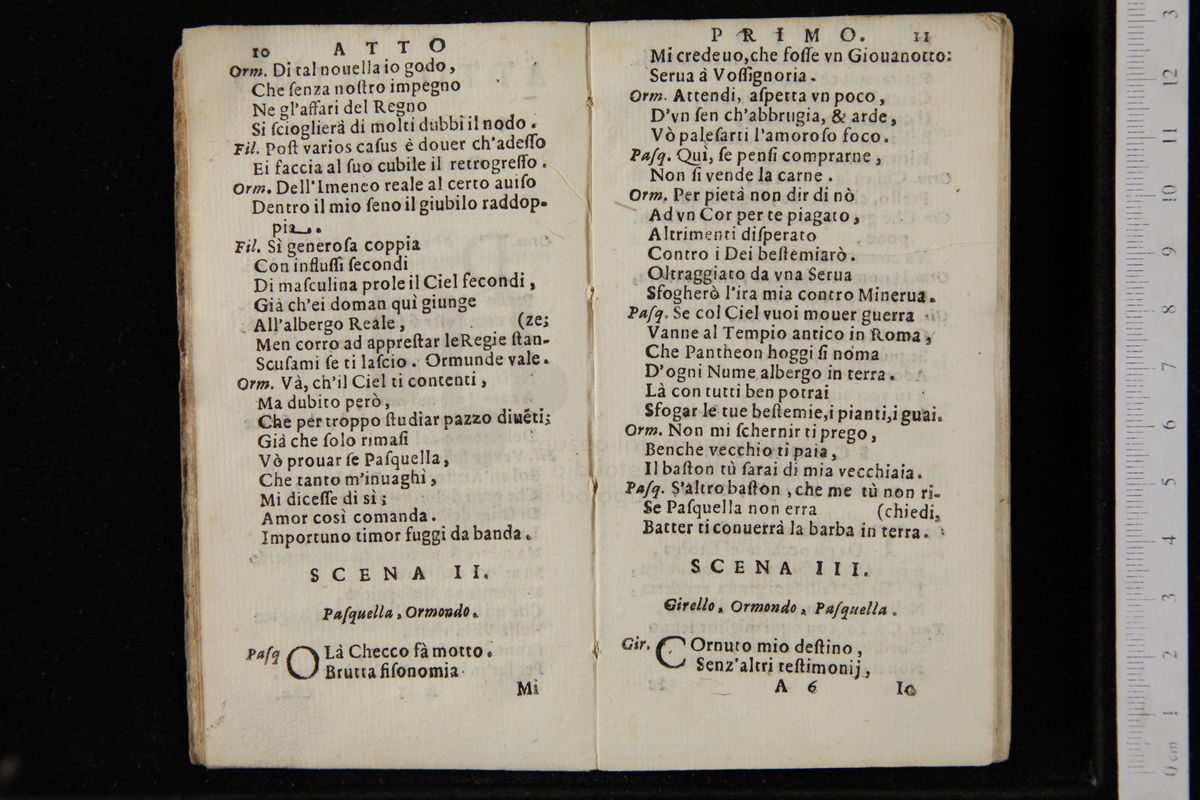 10 ATTO
Orm. Di tal nouella io godo,
Che ſenza noſtro impegno
Ne gl'affari del Regno
Si ſcioglierà di molti dubbi il nodo.
Fil. Poſt varios caſus è douer ch'adeſſo
Ei faccia al ſuo cubile il retrogreſſo.
Orm. Dell'Imeneo reale al certo auiſo
Dentro il mio ſeno il giubilo raddop-
pia.
Fil. Sì generoſa coppia
Con influſſi ſecondi
Di maſculina prole il Ciel fecondi,
Già ch'ei doman quì giunge
All'albergo Reale, (ze;
Men corro ad appreſtar le Regie ſtan-
Scuſami ſe ti laſcio. Ormunde vale.
Orm. Và, ch'il Ciel ti contenti,
Ma dubito però,
Che per troppo ſtudiar pazzo diuẽti;
Già che ſolo rimaſi
Vò prouar ſe Paſquella,
Che tanto m'inuaghì,
Mi diceſſe di sì;
Amor così comanda.
Importuno timor fuggi da banda.
SCENA II.
Paſquella, Ormondo.
Paſq OLà Checco fà motto.
Brutta fiſonomia
Mi
PRIMO. 11
Mi credeuo, che foſſe vn Giouanotto:
Serua à Voſſignoria.
Orm. Attendi, aſpetta vn poco,
D'vn ſen ch'abbrugia, & arde,
Vò paleſarti l'amoroſo foco.
Paſq. Quì, ſe penſi comprarne,
Non ſi vende la carne.
Orm. Per pietà non dir di nò
Ad vn Cor per te piagato,
Altrimenti diſperato
Contro i Dei beſtemiarò.
Oltraggiato da vna Serua
Sfogherò l'ira mia contro Minerua.
Paſq. Se col Ciel vuoi mouer guerra
Vanne al Tempio antico in Roma,
Che Pantheon hoggi ſi noma
D'ogni Nume albergo in terra.
Là con tutti ben potrai
Sfogar le tue beſtemie, i pianti, i guai.
Orm. Non mi ſchernir ti prego,
Benche vecchio ti paia,
Il baſton tù ſarai di mia vecchiaia.
Paſq. S'altro baſton, che me tù non ri-
Se Paſquella non erra (chiedi,
Batter ti conuerrà la barba in terra.
SCENA III.
Girello, Ormondo, Paſquella.
Gir. COrnuto mio deſtino,
Senz'altri teſtimonij,
A 6 Io
0 cm 1 2 3 4 5 6 7 8 9 10 11 12 3